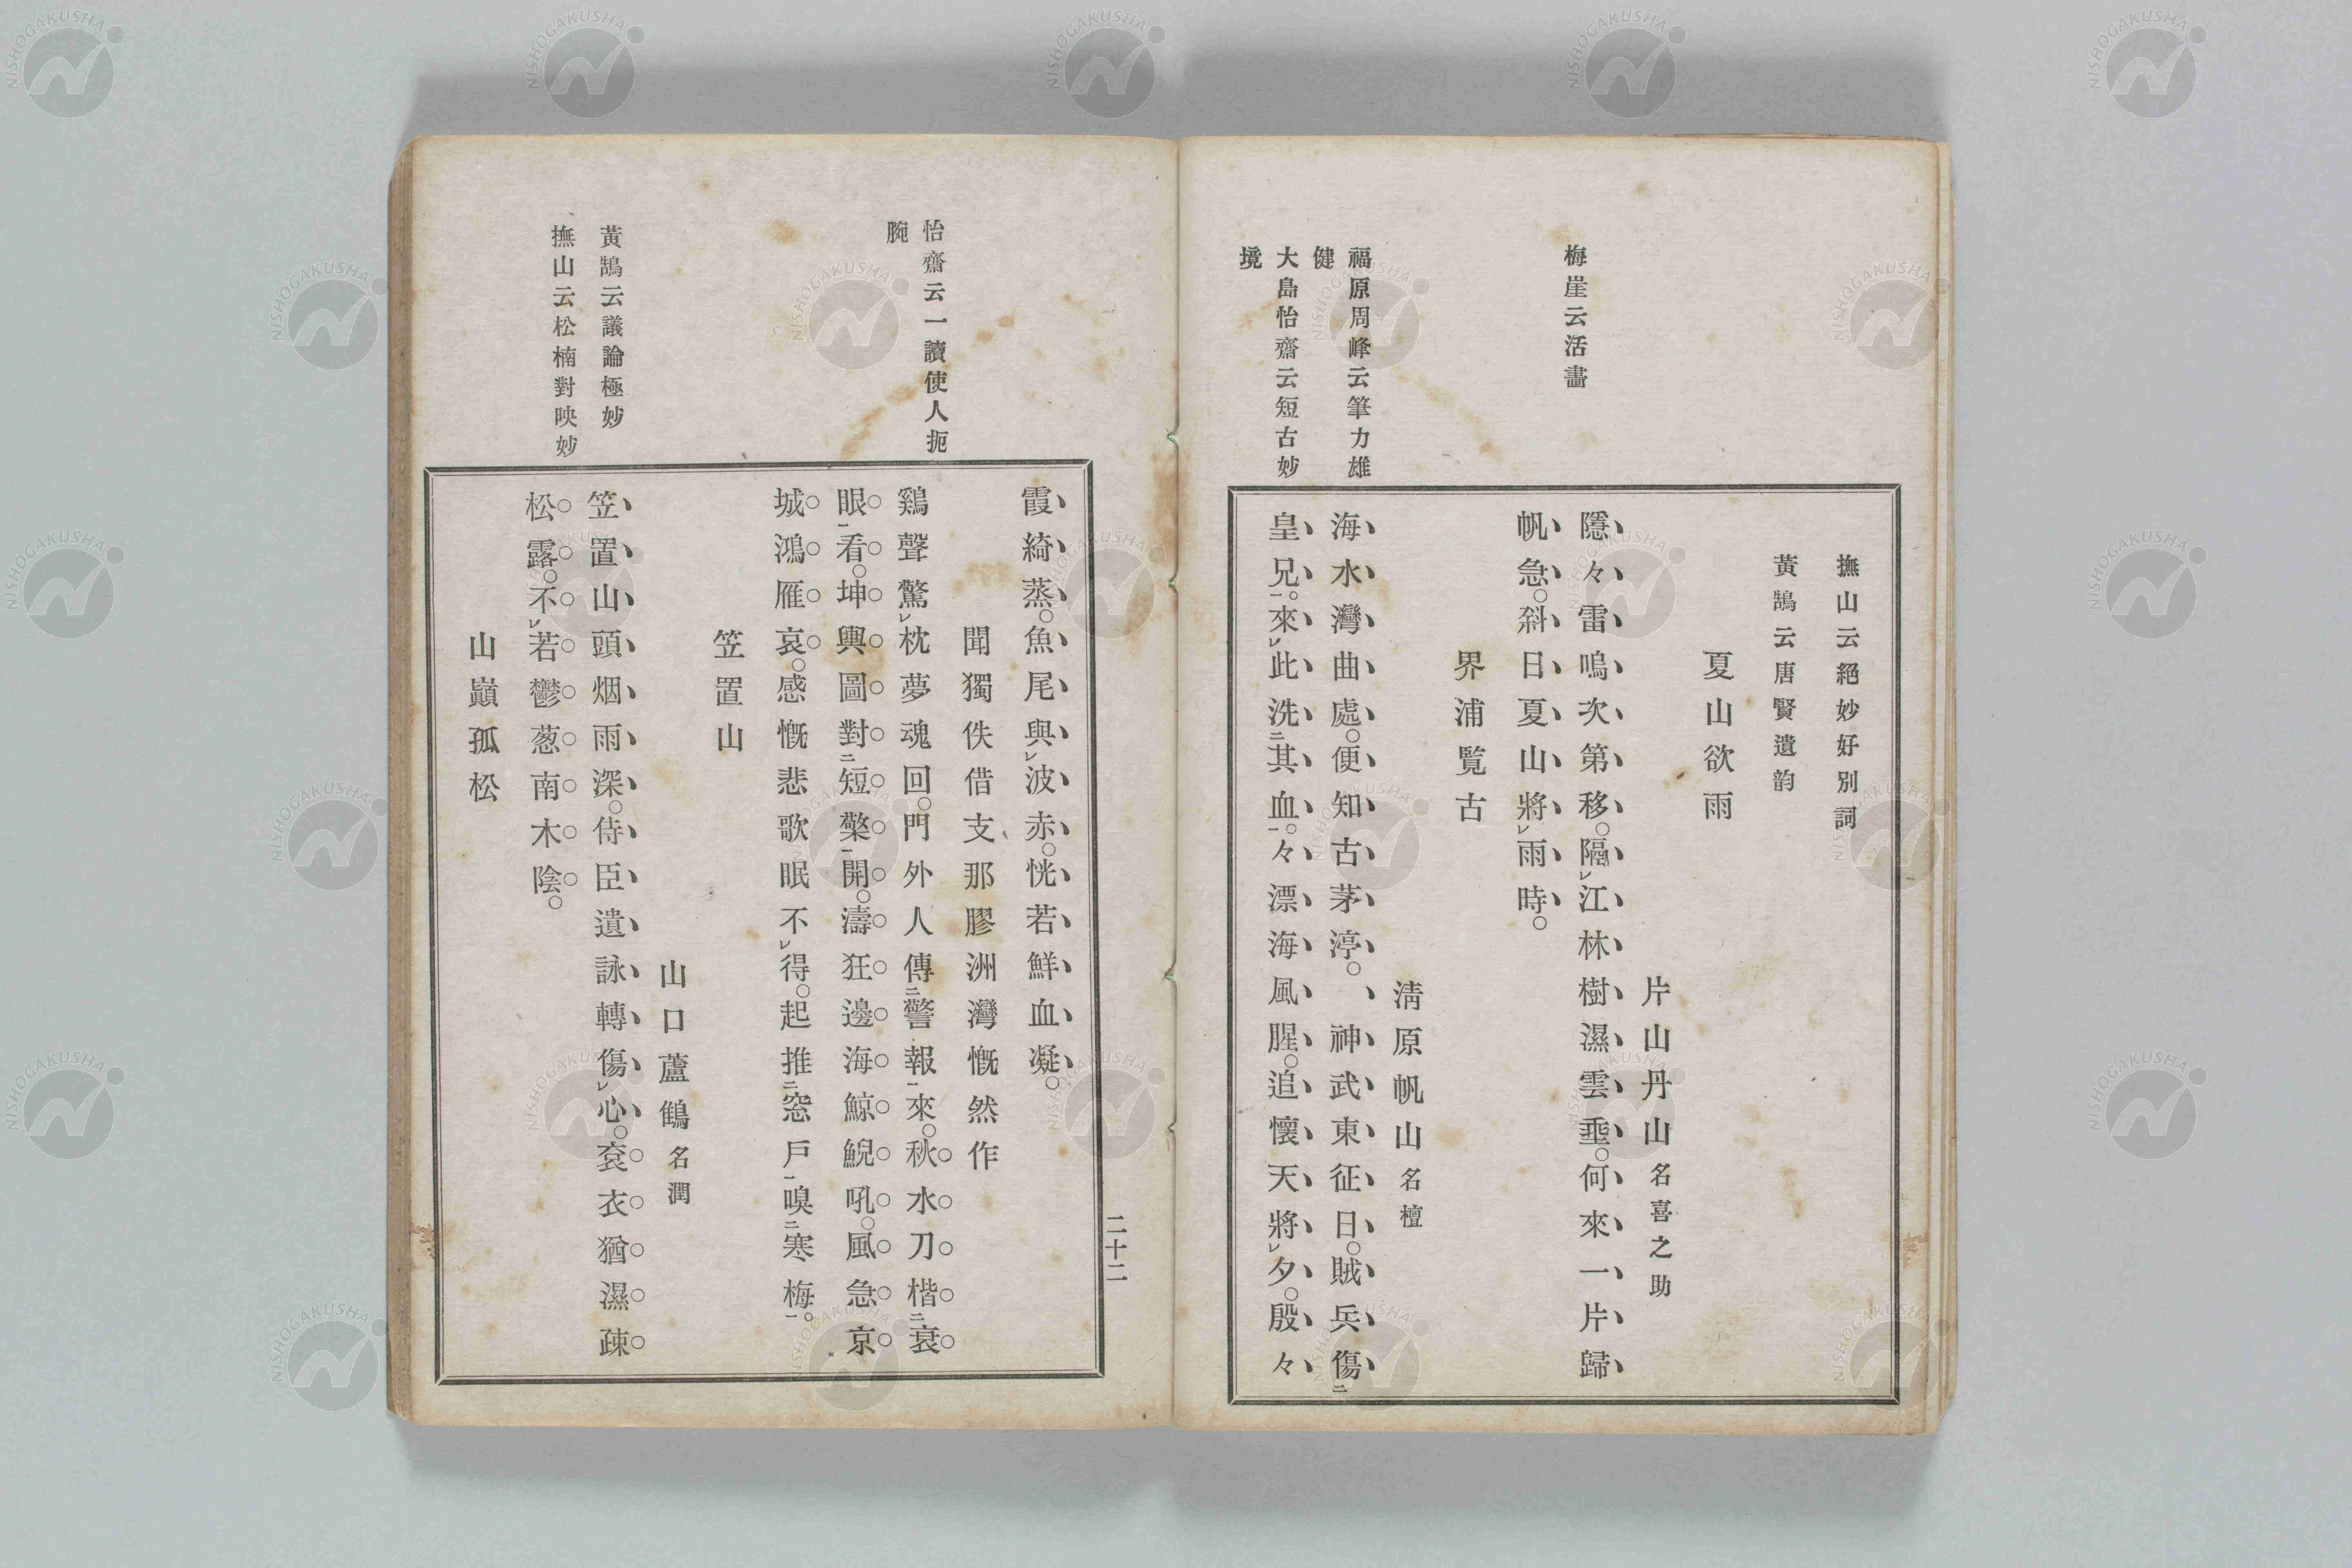 撫山云絕妙好別詞
黃鵠云唐賢遺韵
夏山欲雨
片山丹山名喜之助
梅崖云活畵
隱々雷鳴次第移。隔レ江林樹濕雲垂。何來一片歸
帆急。斜日夏山將レ雨時。
界浦覽古
淸原帆山名檀
福原周峰云筆力雄
健
大島怡齋云短古妙
境
海水灣曲處。便知古茅渟。 神武東征日。賊兵傷二
皇兄一。來レ此洗二其血一。々漂海風腥。追懷天將レ夕。殷々
霞綺蒸。魚尾與レ波赤。恍若鮮血凝。
聞獨佚借支那膠洲灣慨然作
怡齋云一讀使人扼
腕
鷄聲驚レ枕夢魂回。門外人傳二警報一來。秋水刀楷二衰
眼一看。坤輿圖對二短檠一開。濤狂邊海鯨鯢吼。風急京
城鴻雁哀。感慨悲歌眠不レ得。起推二窓戶一嗅二寒梅一。
笠置山
山口蘆鶴名潤
黃鵠云議論極妙
撫山云松楠對映妙
笠置山頭烟雨深。侍臣遺詠轉傷レ心。袞衣猶濕疎
松露。不レ若鬱葱南木陰。
山巓孤松
二十二
NISHOGAKUSHA